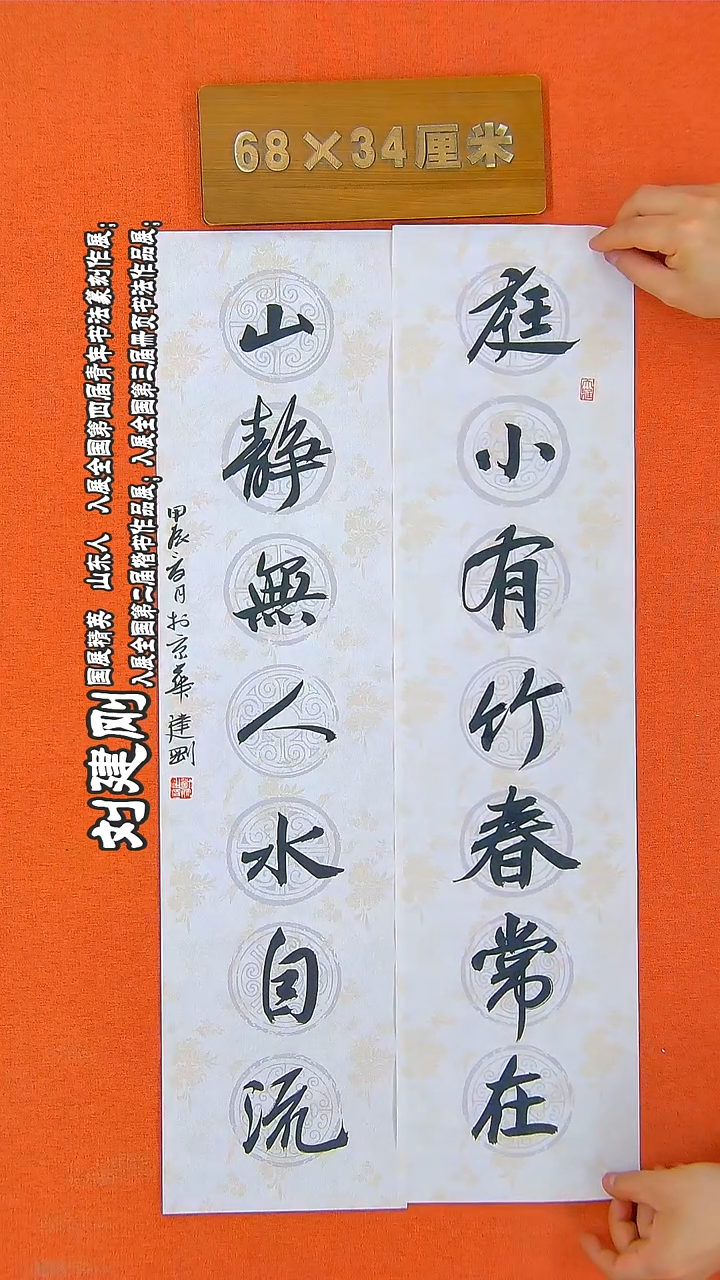 68×34厘米
庭小有竹春常在
山静無人水自流
甲辰月於京華 建剛
刘建刚
国展精英 山东人 入展全国第四届青年书法篆刻作展；
入展全国第二届楷书作品展；入展全国第三届册页书法作品展；